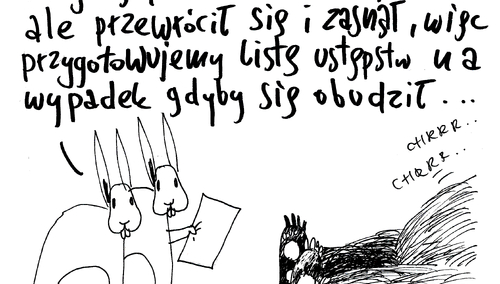 ale przewrócił się i zasnął, więc
przygotowujemy listę ustępstw na
wypadek gdyby się obudził...
CHRRR..
CHRRR..